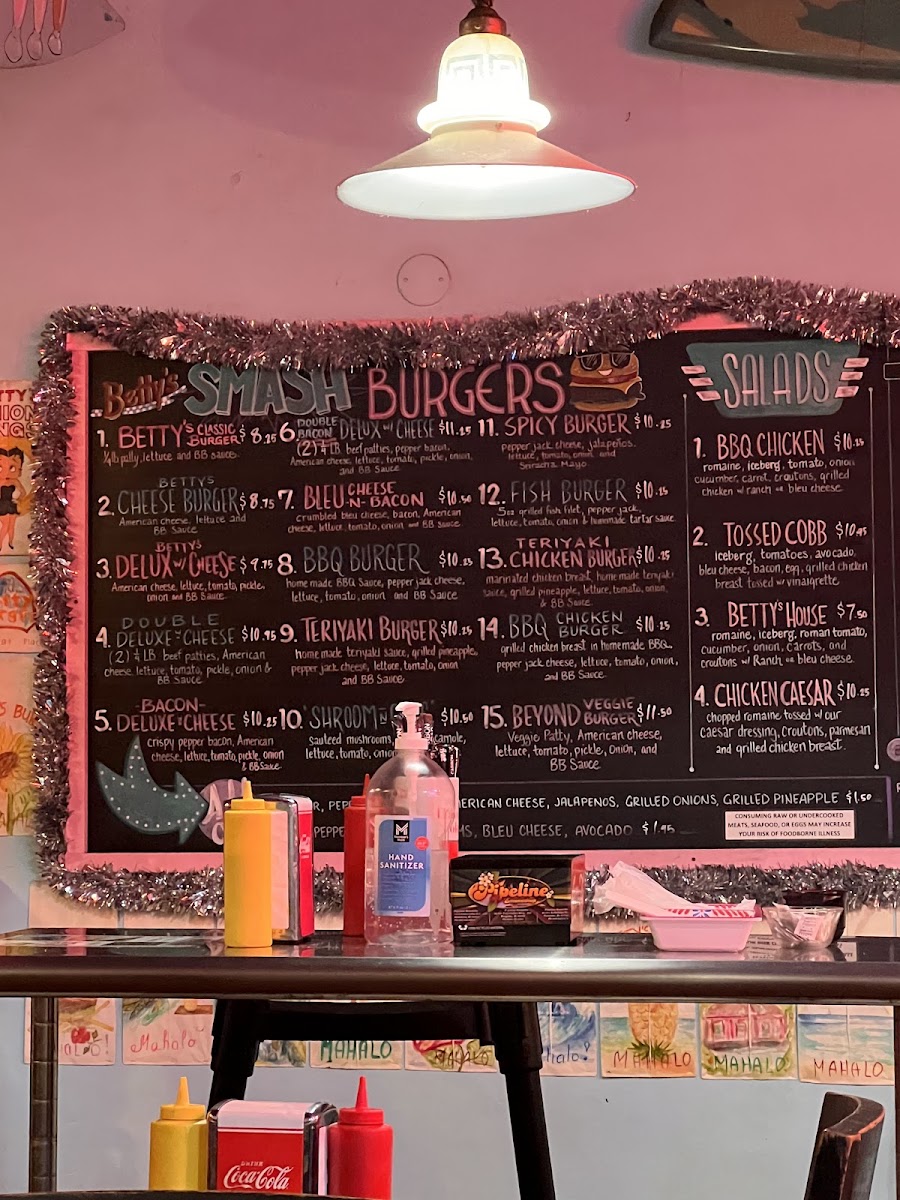 Betty's SMASH BURGERS
1. BETTY'S CLASSIC BURGER $8.25
1/4lb patty, lettuce and BB sauce.
2. BETTY'S CHEESE BURGER $8.75
American cheese, lettuce and
BB Sauce
3. BETTY'S DELUX W/ CHEESE $9.75
American cheese, lettuce, tomato, pickle,
onion and BB Sauce
4. DOUBLE DELUXE W/ CHEESE $10.95
(2) 1/4 LB beef patties, American
cheese, lettuce, tomato, pickle, onion &
BB Sauce
5. -BACON- DELUXE W/ CHEESE $10.25
crispy pepper bacon, American
cheese, lettuce, tomato, pickle, onion
& BB Sauce
6. DOUBLE BACON DELUX W/ CHEESE $11.25
(2) 1/4 LB beef patties, pepper bacon,
American cheese, lettuce, tomato, pickle, onion,
and BB Sauce
7. BLEU CHEESE N-BACON $10.50
crumbled bleu cheese, bacon, American
cheese, lettuce, tomato, onion and BB sauce
8. BBQ BURGER $10.25
home made BBQ Sauce, pepper jack cheese,
lettuce, tomato, onion and BB Sauce
9. TERIYAKI BURGER $10.25
home made teriyaki sauce, grilled pineapple,
pepper jack cheese, lettuce, tomato, onion
and BB Sauce
10. 'SHROOM $10.50
sauteed mushrooms
lettuce, tomato,
11. SPICY BURGER $10.25
pepper jack cheese, jalapeños,
lettuce, tomato, onion and
Sriracha Mayo
12. FISH BURGER $10.25
5oz grilled fish filet, pepper jack,
lettuce, tomato, onion & homemade tartar sauce
13. TERIYAKI CHICKEN BURGER $10.25
marinated chicken breast, home made teriyaki
sauce, grilled pineapple, lettuce, tomato, onion,
& BB Sauce
14. BBQ CHICKEN BURGER $10.25
grilled chicken breast in homemade BBQ,
pepper jack cheese, lettuce, tomato, onion,
and BB Sauce.
15. BEYOND VEGGIE BURGER $11.50
Veggie Patty, American cheese,
lettuce, tomato, pickle, onion, and
BB Sauce
SALADS
1. BBQ CHICKEN $10.25
romaine, iceberg, tomato, onion
cucumber, carrot, croutons, grilled
chicken w/ ranch or bleu cheese
2. TOSSED COBB $10.95
iceberg, tomatoes, avocado,
bleu cheese, bacon, egg, grilled chicken
breast tossed w/ vinaigrette
3. BETTY'S HOUSE $7.50
romaine, iceberg, roman tomato,
cucumber, onion, carrots, and
croutons w/ Ranch or bleu cheese
4. CHICKEN CAESAR $10.25
chopped romaine tossed w/ our
caesar dressing, croutons, parmesan
and grilled chicken breast.
AMERICAN CHEESE, JALAPENOS, GRILLED ONIONS, GRILLED PINEAPPLE $1.50
BLEU CHEESE, AVOCADO $1.95
CONSUMING RAW OR UNDERCOOKED
MEATS, SEAFOOD, OR EGGS MAY INCREASE
YOUR RISK OF FOODBORNE ILLNESS
M
HAND
SANITIZER
Pipeline
Mahalo
MAHALO
MAHALO
MAHALO
MAHALO
MAHALO
DRINK
Coca-Cola